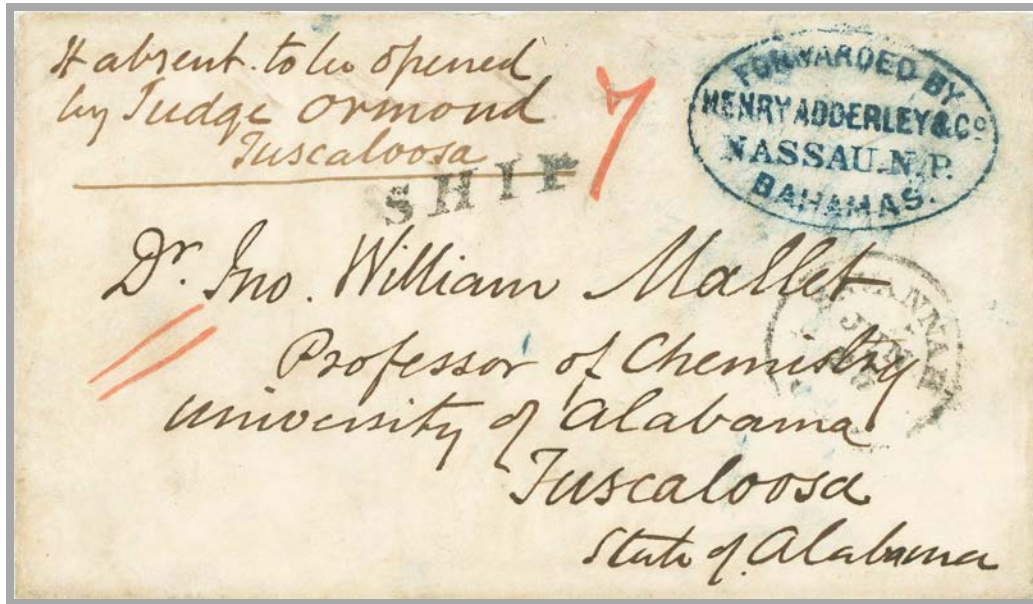 If absent. to be opened
by Judge Ormond
Tuscaloosa
7
SHIP
FORWARDED BY
HENRY ADDERLEY & Co
NASSAU.N.P.
BAHAMAS.
Dr. Jno. William Mallet
Professor of Chemistry
University of Alabama
Tuscaloosa
State of Alabama